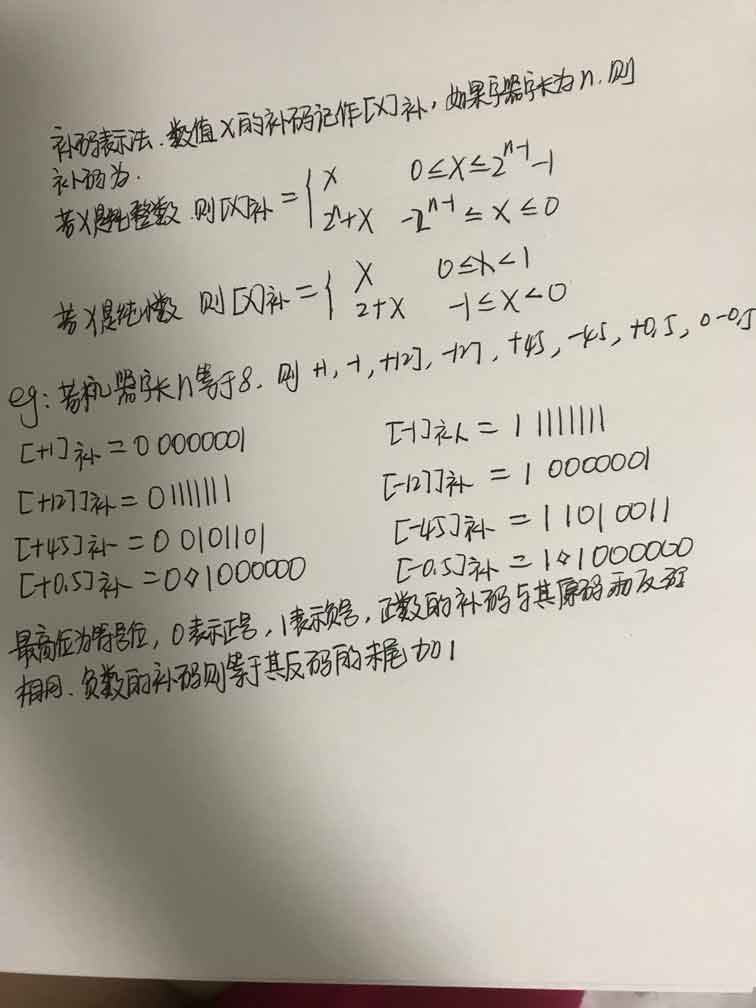 补码表示法.数值X的补码记作[X]补,如果字器字长为n.则
补码为.
若X是纯整数.则[X]补={X 0≤X≤2^{n-1}-1
2^n+X -2^{n-1}≤X≤0
若X是纯小数 则[X]补={X 0≤X<1
2+X -1≤X<0
eg:若机器字长n等于8.则+1,-1,+127,-127,+45,-45,+0.5,0-0.5
[+1]补=0 0000001 [-1]补=1 1111111
[+127]补=0 1111111 [-127]补=1 0000001
[+45]补=0 0101101 [-45]补=1 1010011
[+0.5]补=0◊1000000 [-0.5]补=1◊1000000
最高位为符号位,0表示正号,1表示负号,正数的补码与其原码而反码
相同.负数的补码则等于其反码的末尾加1